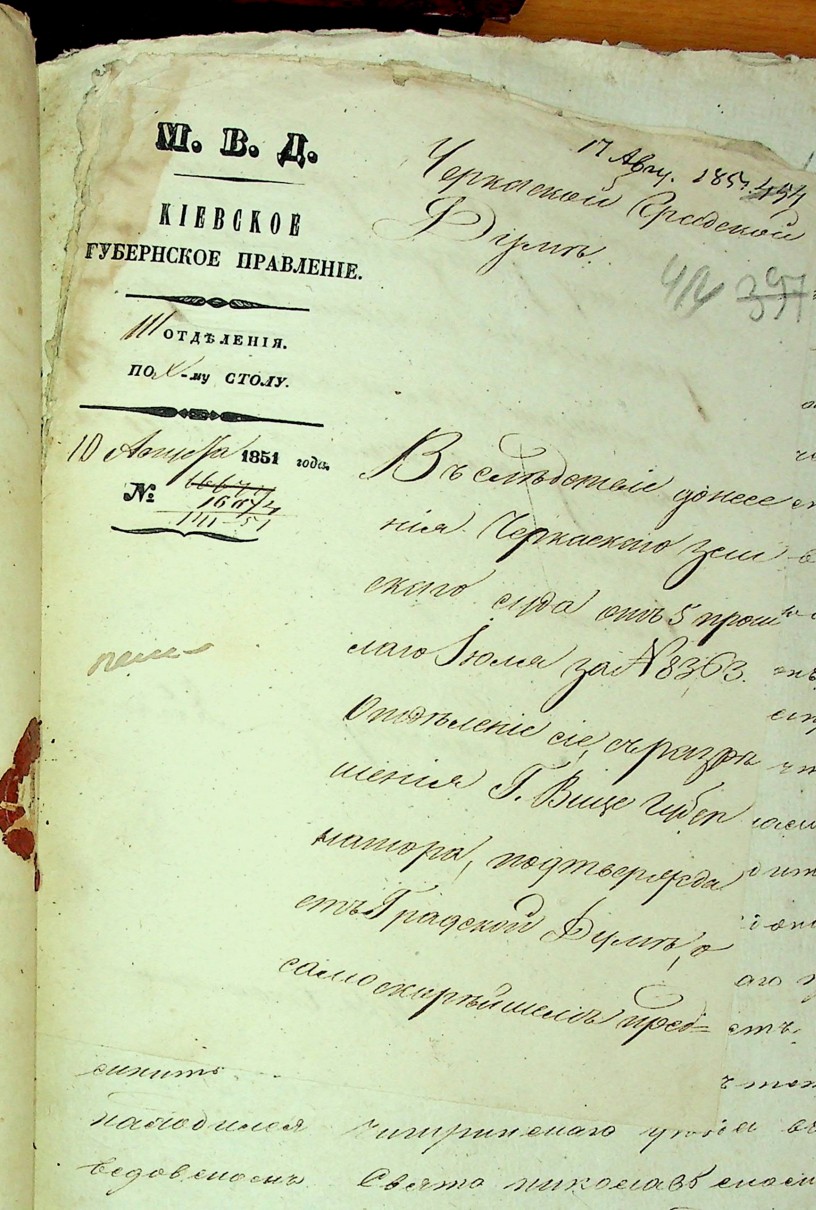 М. В. Д.
КІЕВСКОЕ
ГУБЕРНСКОЕ ПРАВЛЕНІЕ.
III ОТДѢЛЕНІЯ.
ПО X-му СТОЛУ.
10 Августа 1851 года.
№
17 Авгу. 1851. 454
Черкаской Градской
Думѣ.
397
Въ слѣдствіи донесе
нія Черкаскаго Зем
скаго суда отъ 5 прош
лаго Іюля за № 8363.
Отдѣленіе сіе, съ разрѣ
шенія Г. Вице Губер
натора, подтвержда
етъ Градской Думѣ, о
самоскорѣйшемъ пред=
находился Чигринскаго уѣзда въ
Свято Николаев